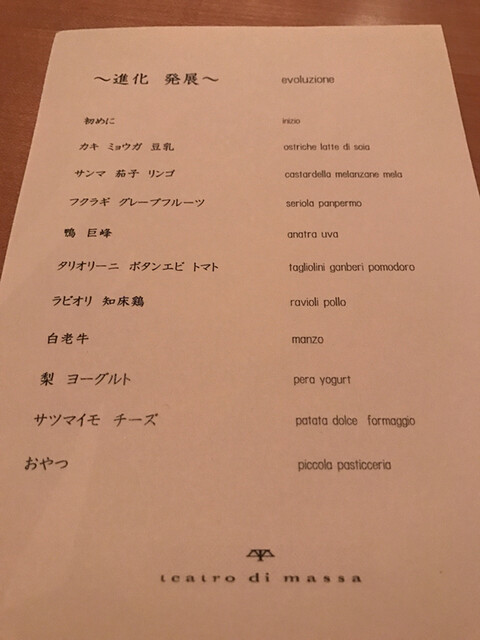 ～進化 発展～ evoluzione
初めに inizio
カキ ミョウガ 豆乳 ostriche latte di soia
サンマ 茄子 リンゴ castardella melanzane mela
フクラギ グレープフルーツ seriola panpermo
鴨 巨峰 anatra uva
タリオリーニ ボタンエビ トマト tagliolini ganberi pomodoro
ラビオリ 知床鶏 ravioli pollo
白老牛 manzo
梨 ヨーグルト pera yogurt
サツマイモ チーズ patata dolce formaggio
おやつ piccola pasticceria
teatro di massa